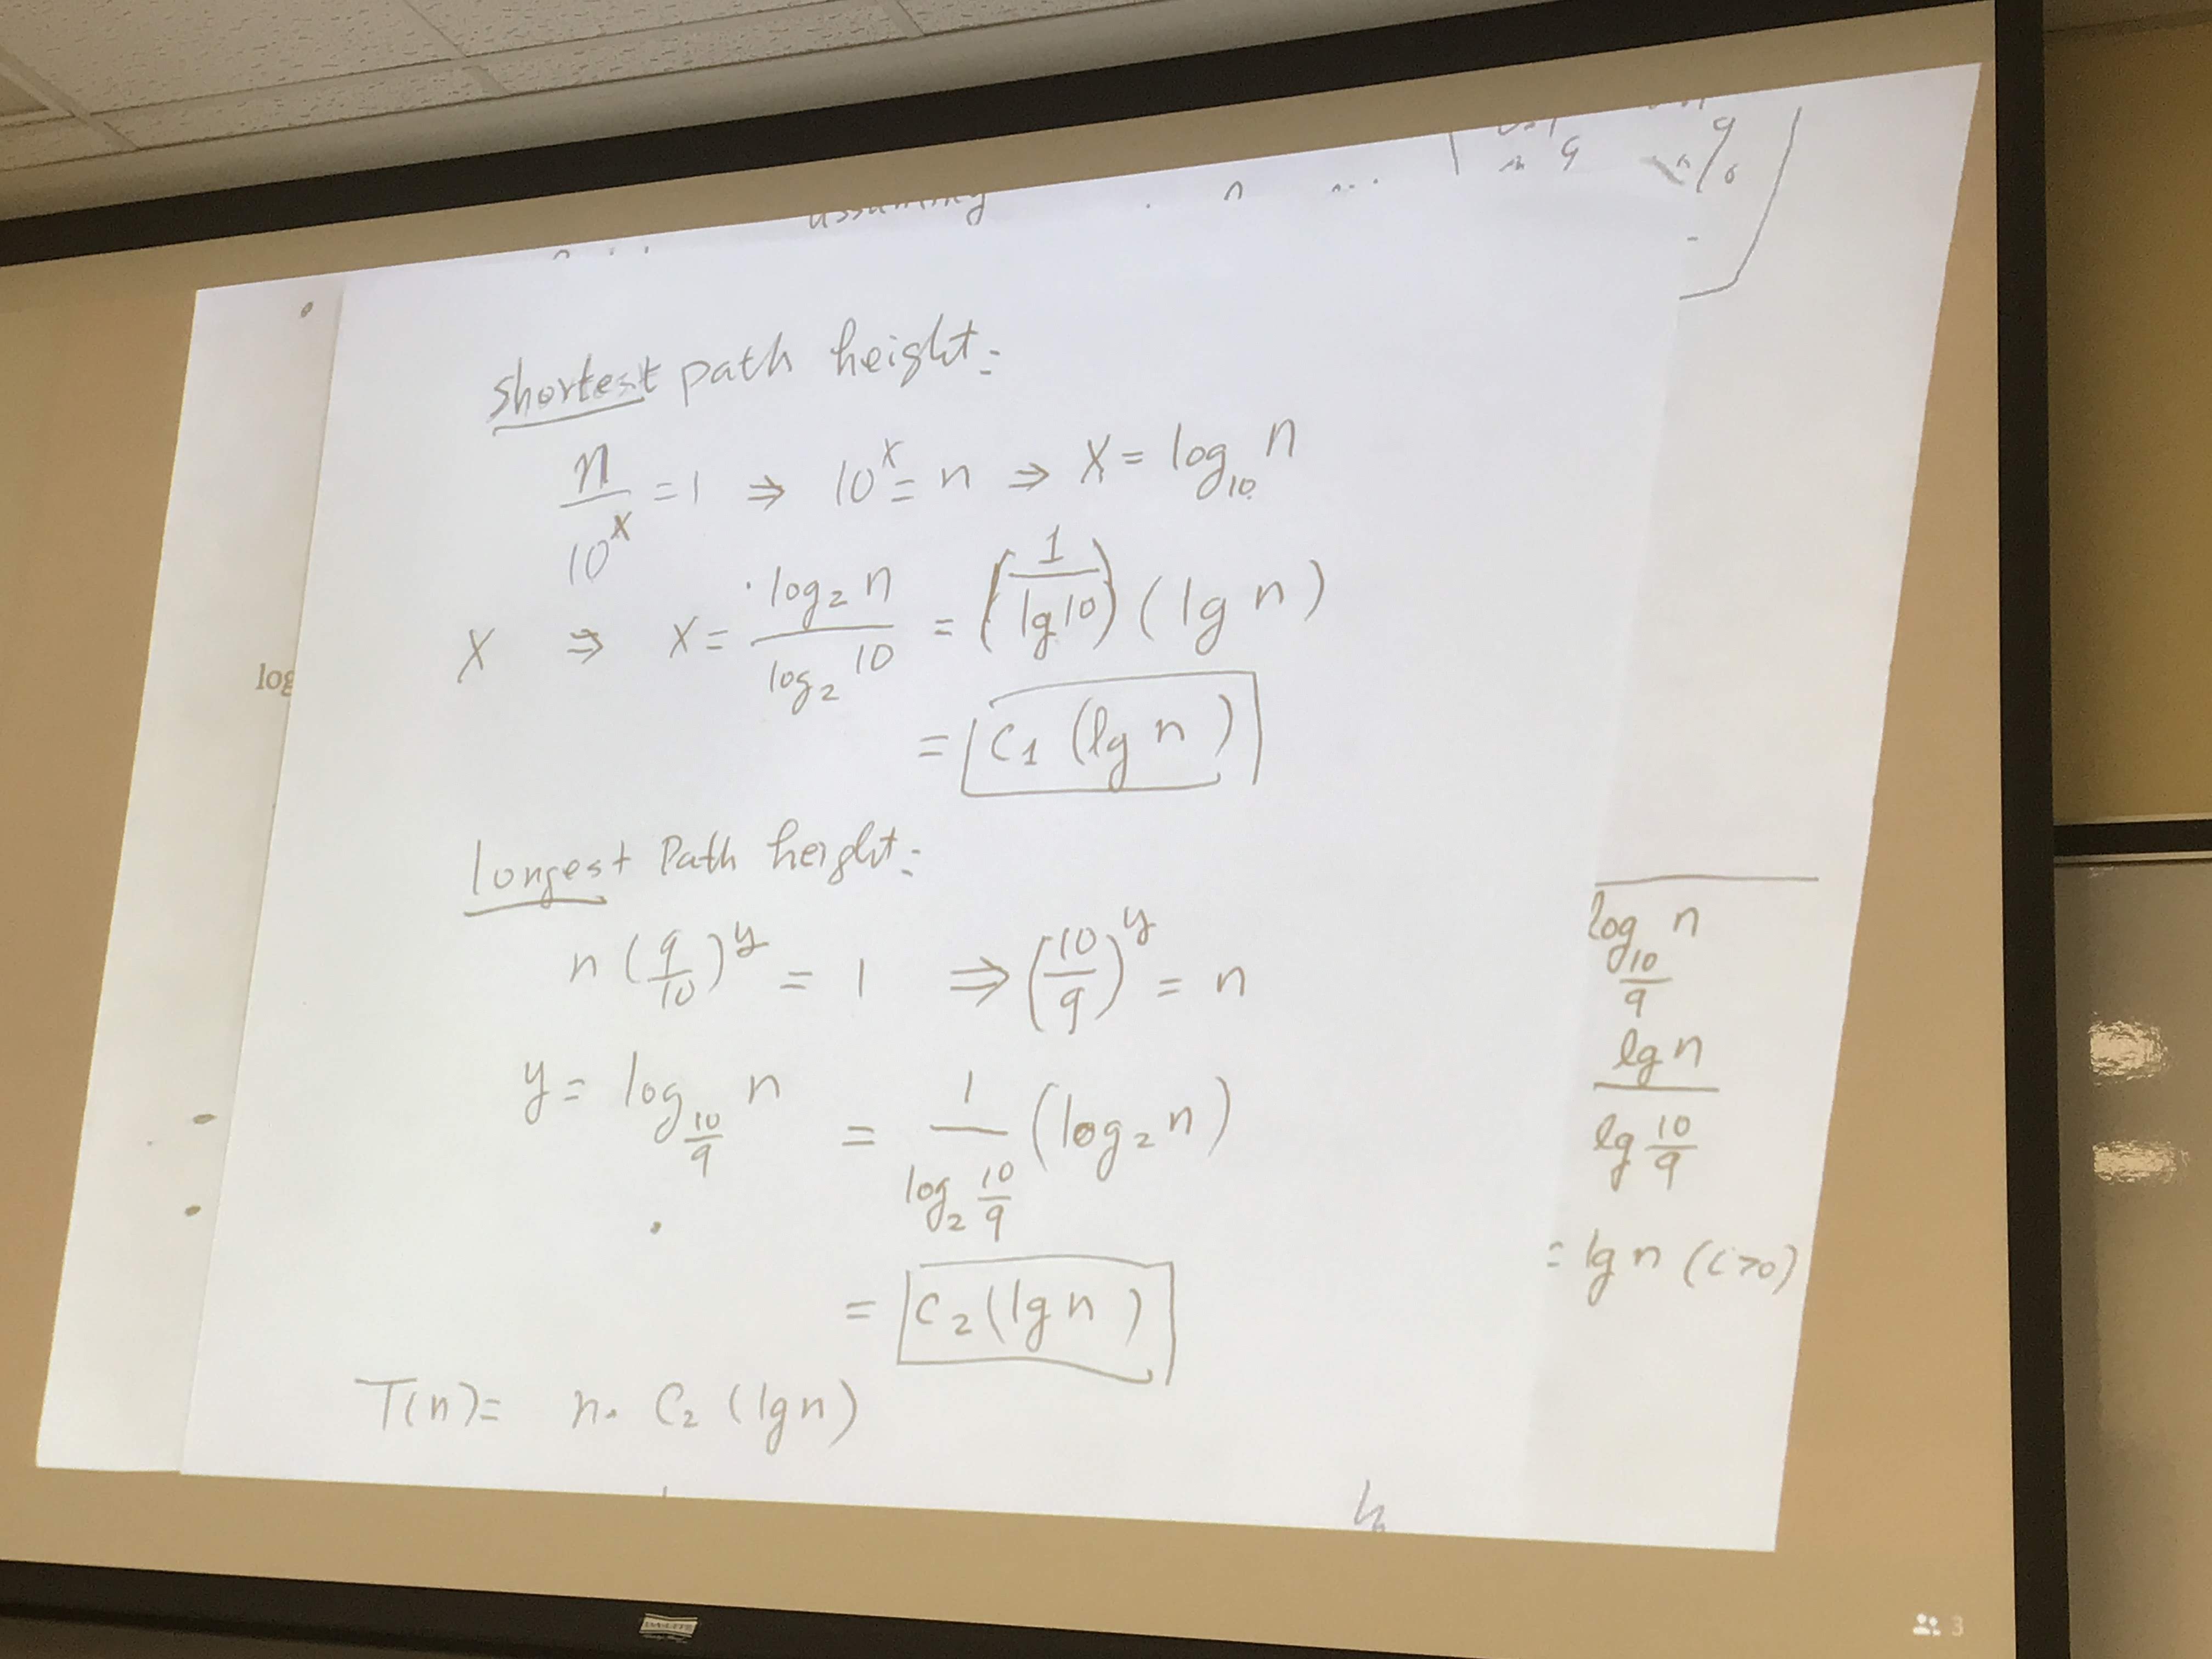 assuming
n
9
Shortest path height:
n/10^x = 1 ⇒ 10^x = n ⇒ X = log_10 n
X ⇒ X = log_2 n / log_2 10 = (1/lg 10) (lg n)
log
= C_1 (lg n)
Longest Path height:
n (9/10)^y = 1 ⇒ (10/9)^y = n
y = log_{10/9} n = 1/(log_2 10/9) (log_2 n)
= C_2 (lg n)
T(n) = n. C_2 (lg n)
log_{10/9} n
lg n / lg 10/9
= lg n (C>0)
DA-LITE
3